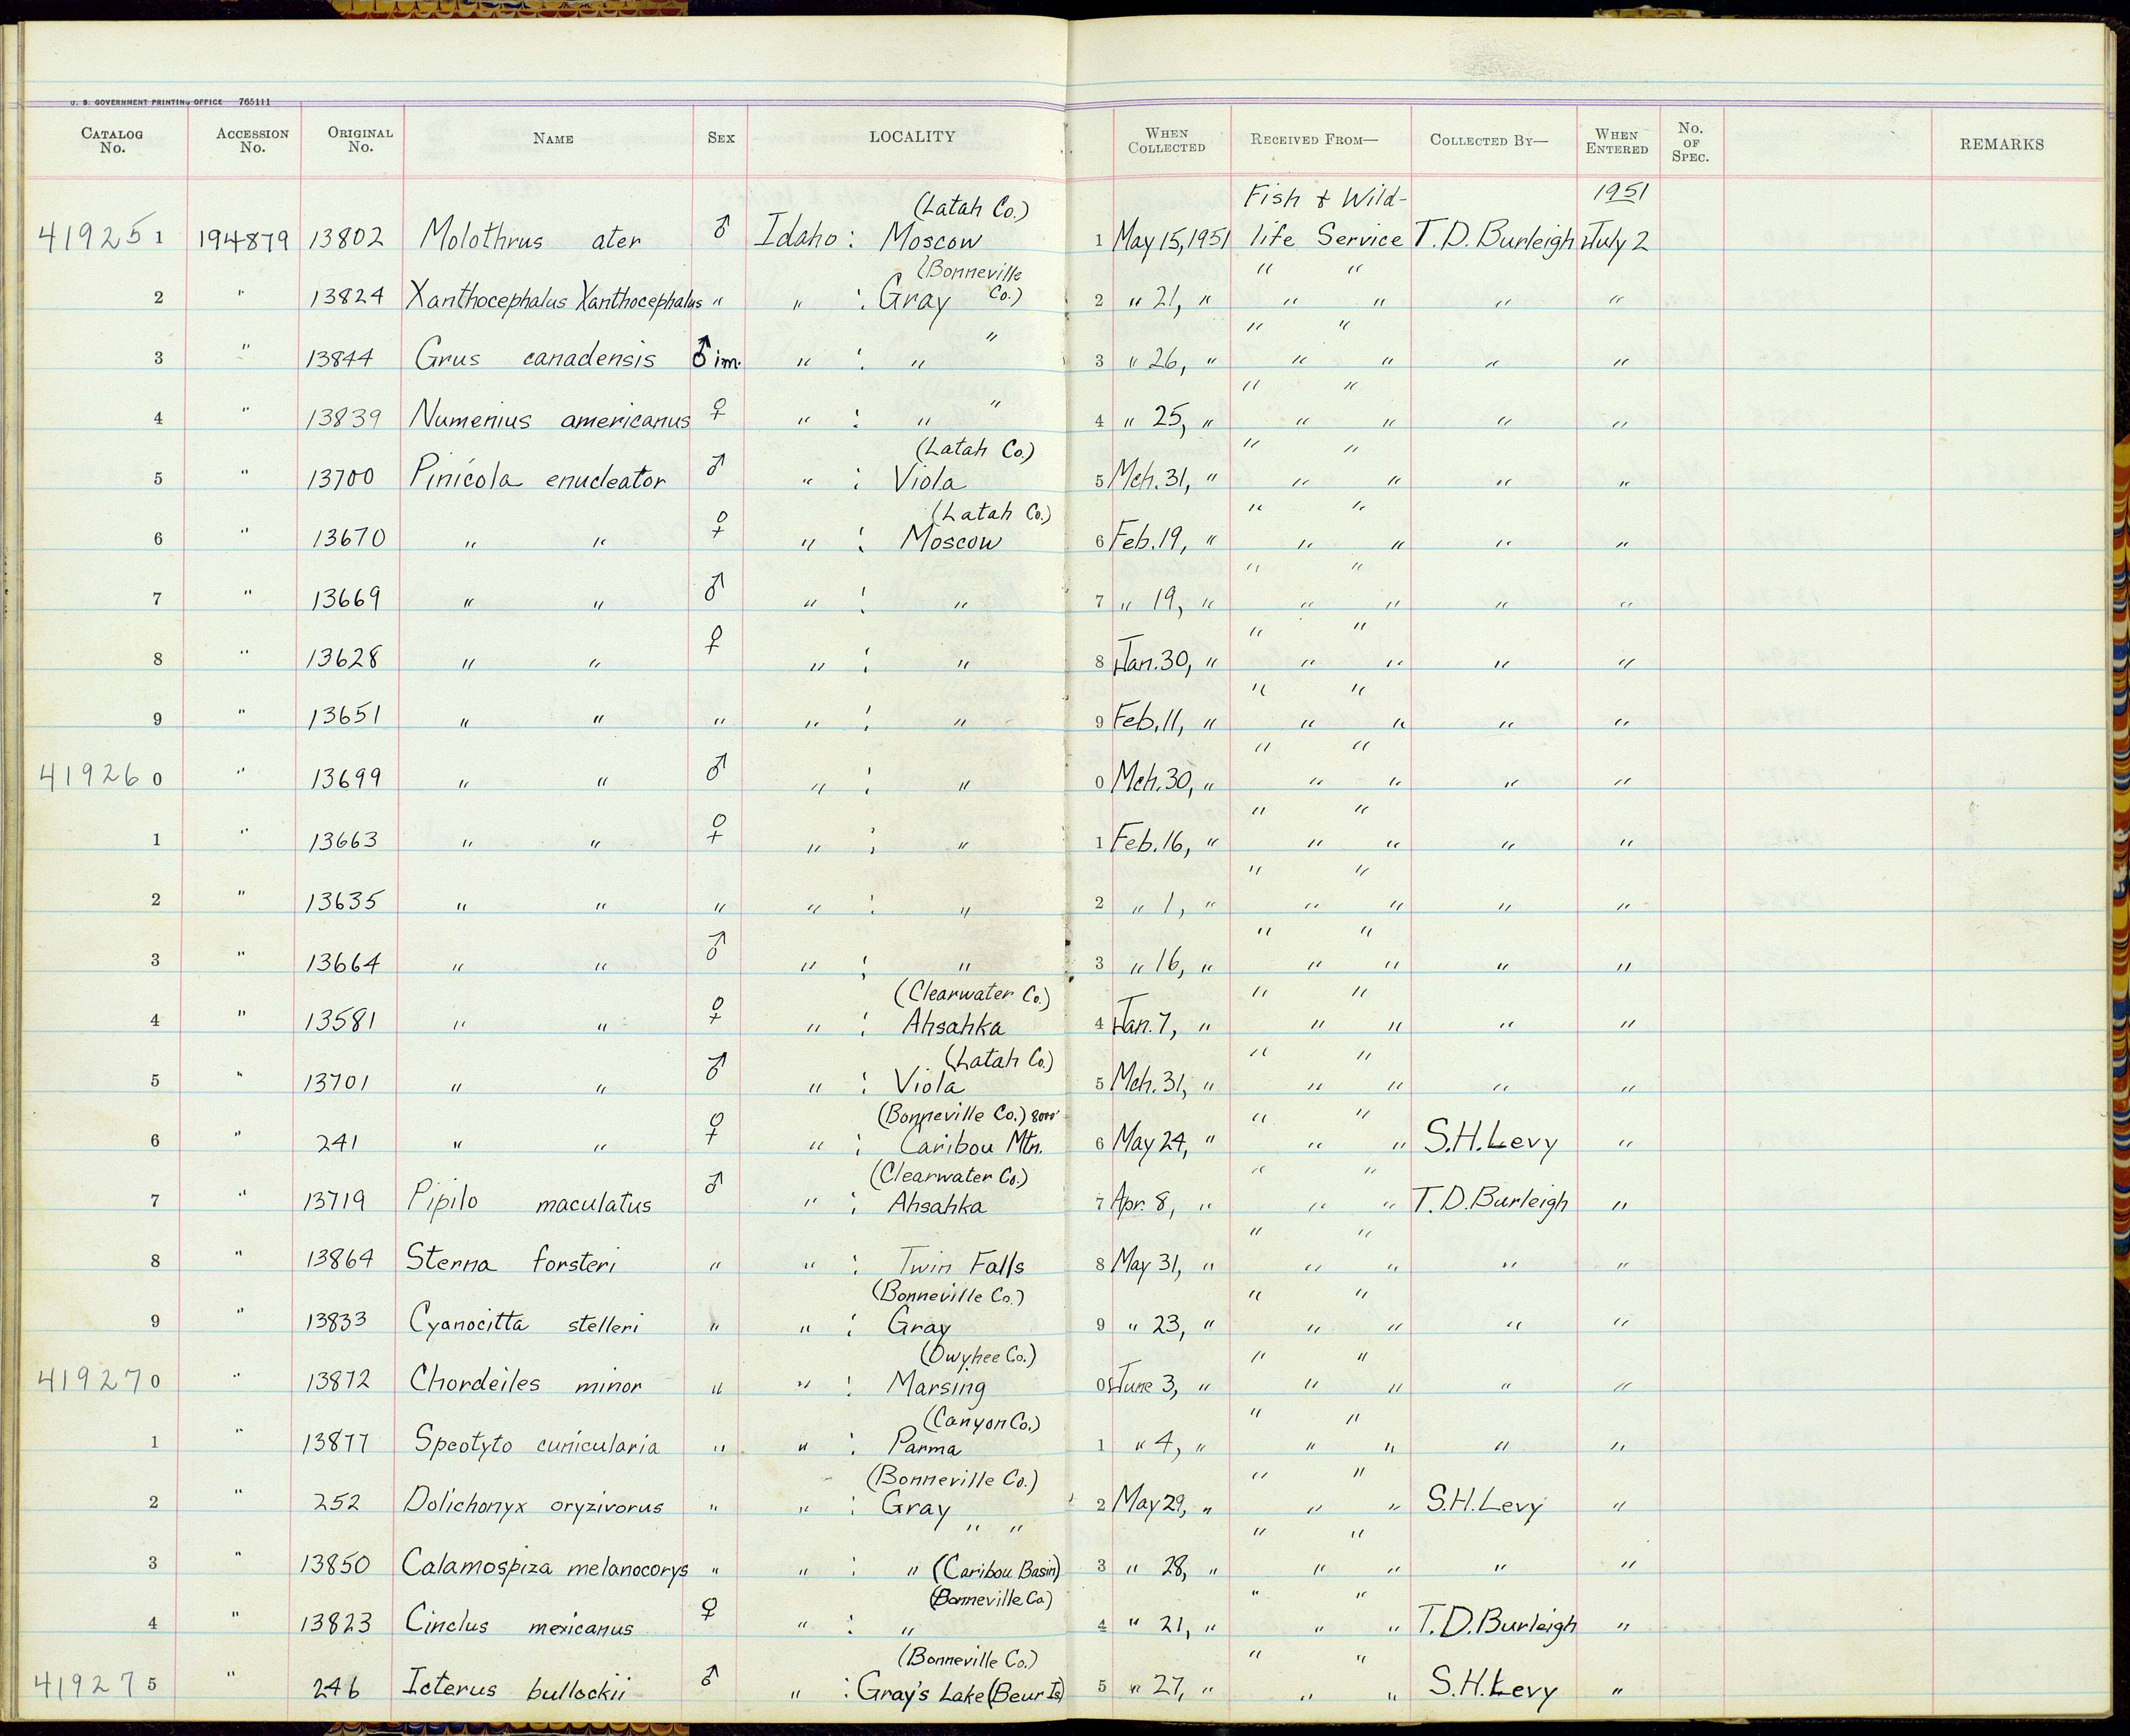 U. S. GOVERNMENT PRINTING OFFICE 765111
CATALOG No. ACCESSION No. ORIGINAL No. NAME SEX LOCALITY WHEN COLLECTED RECEIVED FROM— COLLECTED BY— WHEN ENTERED No. OF SPEC. REMARKS
(Latah Co.) Fish & Wild- 1951
419251 194879 13802 Molothrus ater ♂ Idaho : Moscow 1 May 15, 1951 life Service T.D. Burleigh July 2
(Bonneville " "
2 " 13824 Xanthocephalus Xanthocephalus " " : Gray Co.) 2 " 21, " " " " "
" " "
3 " 13844 Grus canadensis ♂ im. " : " 3 " 26, " " " " "
" " "
4 " 13839 Numenius americanus ♀ " : " 4 " 25, " " " " "
(Latah Co.) " "
5 " 13700 Pinicola enucleator ♂ " : Viola 5 Mch. 31, " " " " "
(Latah Co.) " "
6 " 13670 " " ♀ " : Moscow 6 Feb. 19, " " " " "
" "
7 " 13669 " " ♂ " : " 7 " 19, " " " " "
" "
8 " 13628 " " ♀ " : " 8 Jan. 30, " " " " "
" "
9 " 13651 " " " " : " 9 Feb. 11, " " " " "
" "
419260 " 13699 " " ♂ " : " 0 Mch. 30, " " " " "
" "
1 " 13663 " " ♀ " : " 1 Feb. 16, " " " " "
" "
2 " 13635 " " " " : " 2 " 1, " " " " "
" "
3 " 13664 " " ♂ " : " 3 " 16, " " " " "
(Clearwater Co.) " "
4 " 13581 " " ♀ " : Ahsahka 4 Jan. 7, " " " " "
(Latah Co.) " "
5 " 13701 " " ♂ " : Viola 5 Mch. 31, " " " " "
(Bonneville Co.) 8000' " "
6 " 241 " " ♀ " : Caribou Mtn. 6 May 24, " " " S.H. Levy "
(Clearwater Co.) " "
7 " 13719 Pipilo maculatus ♂ " : Ahsahka 7 Apr. 8, " " " T.D. Burleigh "
" "
8 " 13864 Sterna forsteri " " : Twin Falls 8 May 31, " " " " "
(Bonneville Co.) " "
9 " 13833 Cyanocitta stelleri " " : Gray 9 " 23, " " " " "
(Owyhee Co.) " "
419270 " 13872 Chordeiles minor " " : Marsing 0 June 3, " " " " "
(Canyon Co.) " "
1 " 13877 Speotyto cunicularia " " : Parma 1 " 4, " " " " "
(Bonneville Co.) " "
2 " 252 Dolichonyx oryzivorus " " : Gray 2 May 29, " " " S.H. Levy "
" " " "
3 " 13850 Calamospiza melanocorys " " : " (Caribou Basin) 3 " 28, " " " " "
(Bonneville Co.) " "
4 " 13823 Cinclus mexicanus ♀ " : " 4 " 21, " " " T.D. Burleigh "
(Bonneville Co.) " "
419275 " 246 Icterus bullockii ♂ " : Gray's Lake (Beur Is) 5 " 27, " " " S.H. Levy "